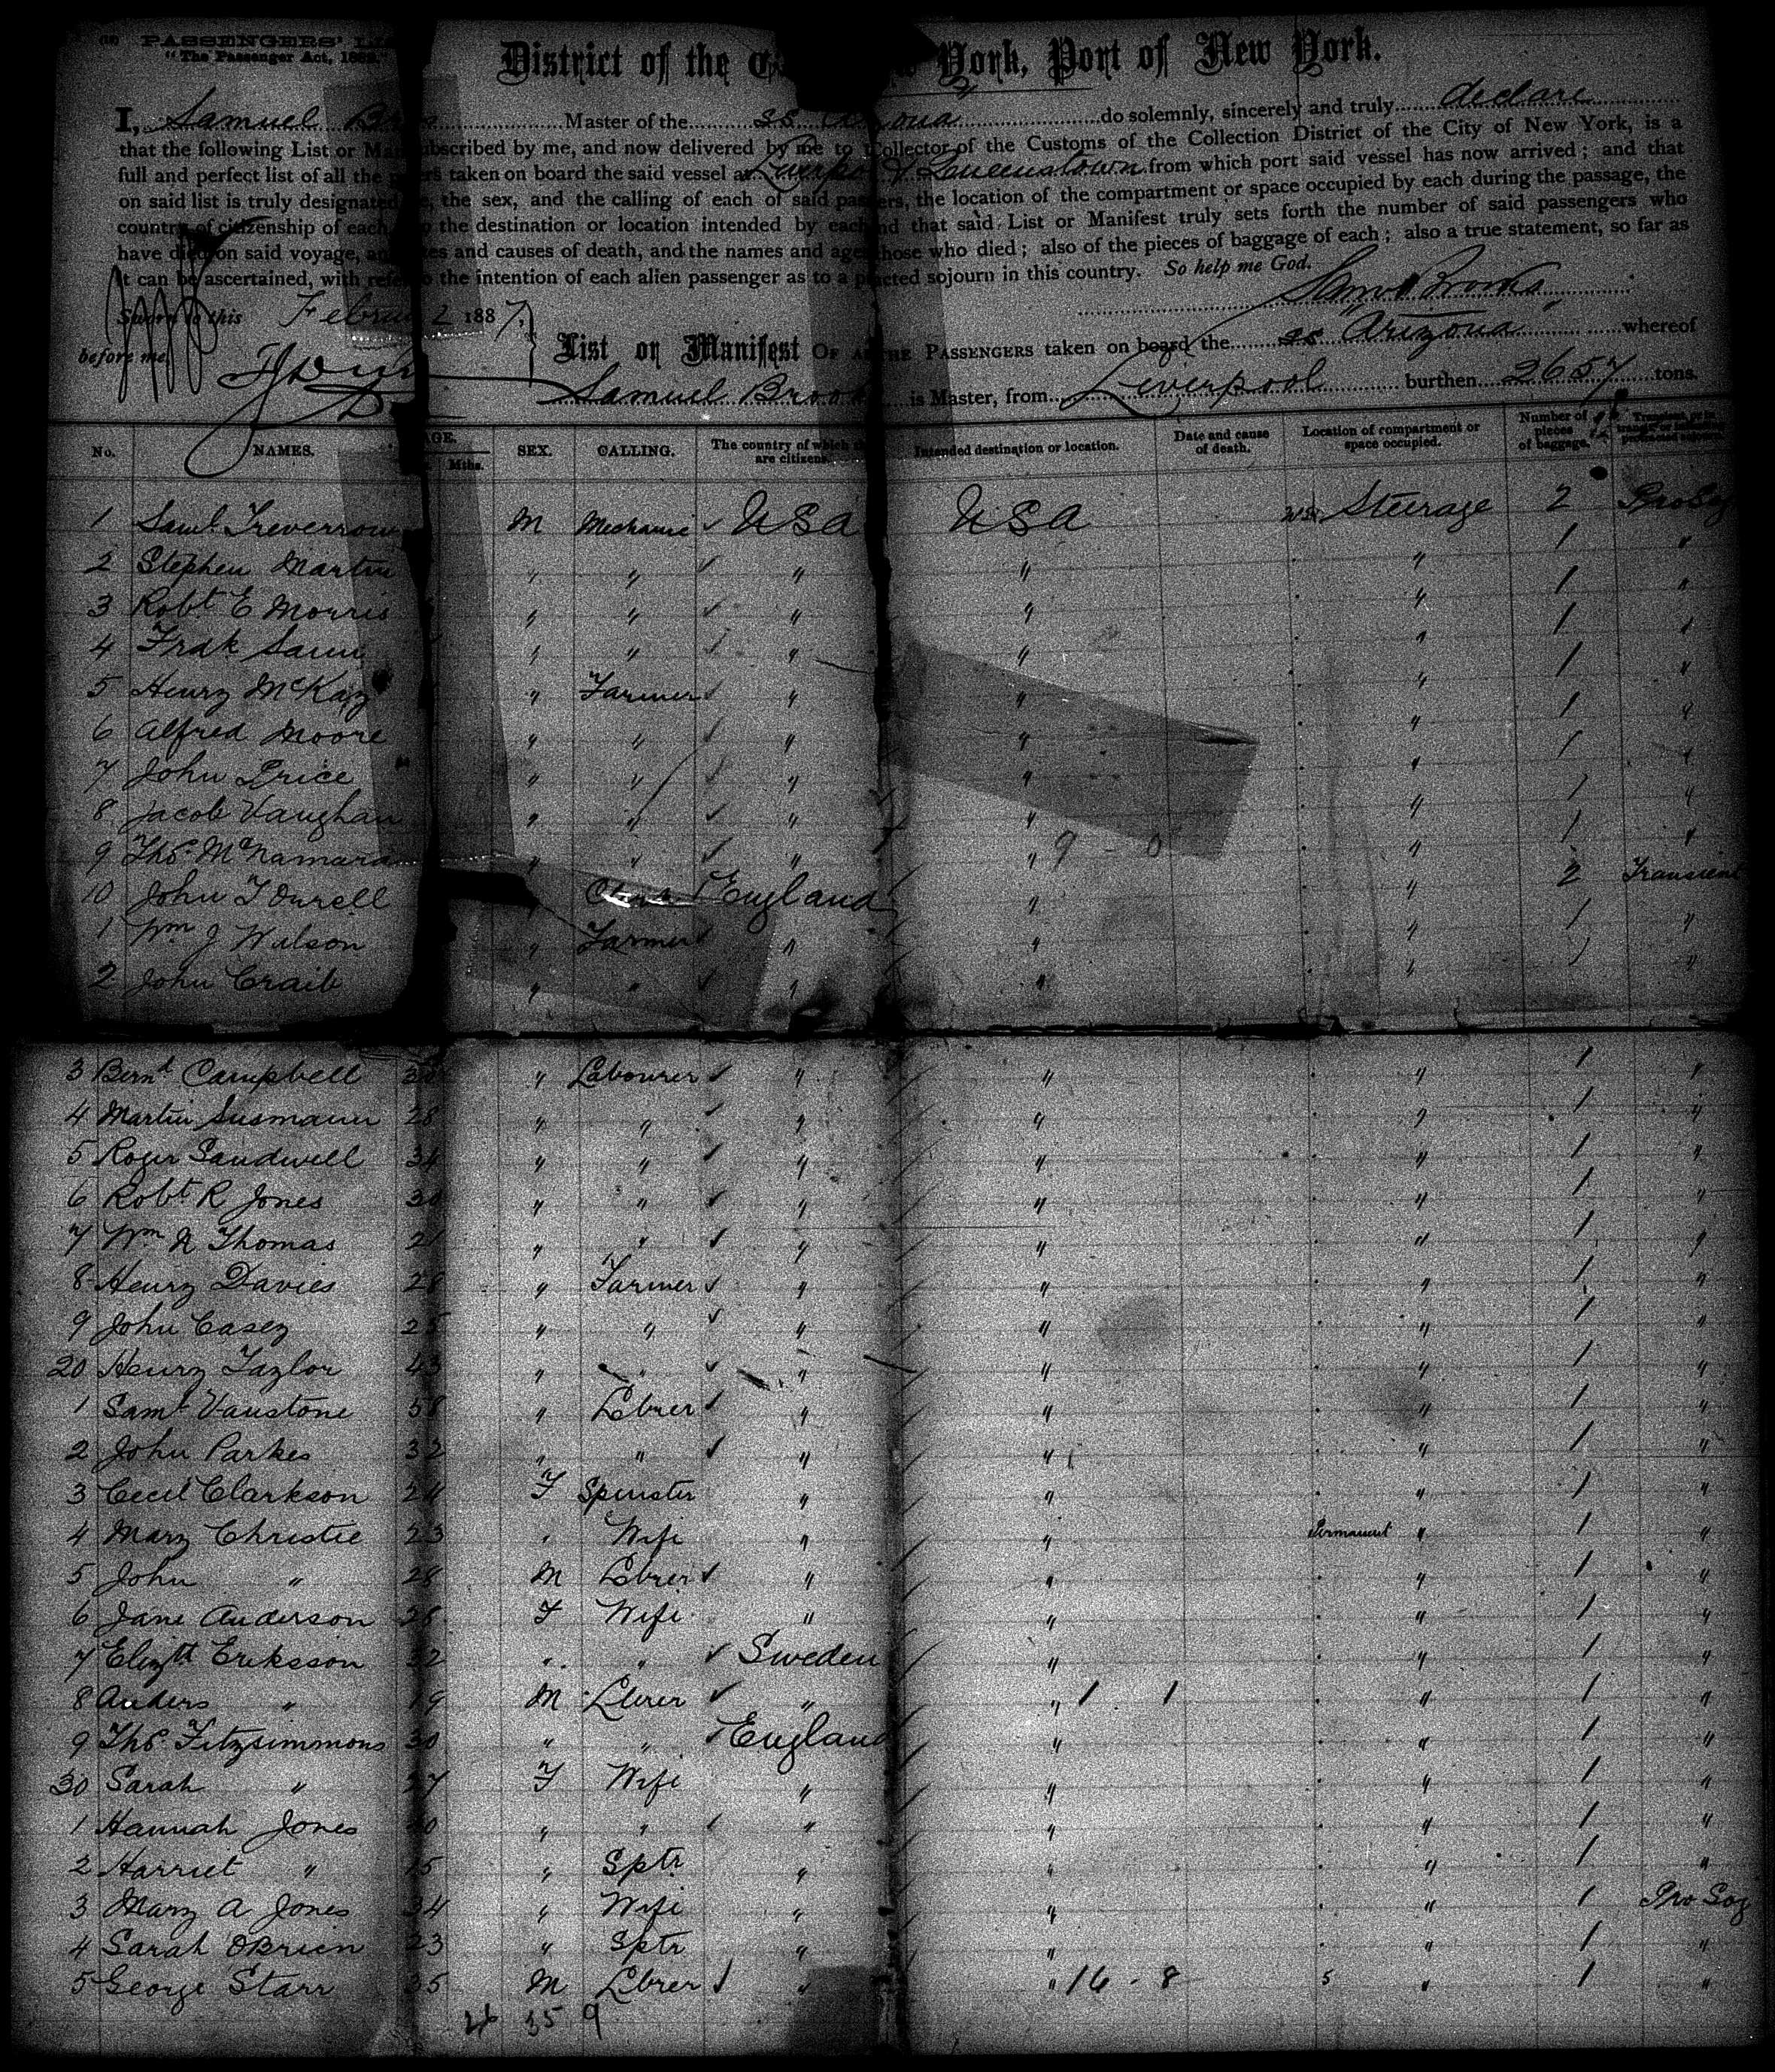 PASSENGERS'
"The Passenger Act, 188
District of the York, Port of New York.
I, Samuel Master of the ss do solemnly, sincerely and truly declare
that the following List or subscribed by me, and now delivered by me to Collector of the Customs of the Collection District of the City of New York, is a
full and perfect list of all the taken on board the said vessel at & Queenstown from which port said vessel has now arrived; and that
on said list is truly designated the sex, and the calling of each of said the location of the compartment or space occupied by each during the passage, the
country of citizenship of each, the destination or location intended by each that said List or Manifest truly sets forth the number of said passengers who
have died on said voyage, and causes of death, and the names and those who died; also of the pieces of baggage of each; also a true statement, so far as
it can be ascertained, with the intention of each alien passenger as to a sojourn in this country. So help me God.
Saml Brooks
Sworn to this 2 1887,
List or Manifest OF THE PASSENGERS taken on board the ss "Arizona" whereof
before me
Samuel Brook is Master, from Liverpool burthen 2657 tons.
No. NAMES. AGE. Mths. SEX. CALLING. The country of which are citizens. Intended destination or location. Date and cause of death. Location of compartment or space occupied. Number of pieces of baggage.
1 Saml. M Mechanic ✓ USA USA Steerage 2
2 Stephen Martin " " ✓ " " " 1 "
3 Robt E Morris " " ✓ " " " 1 "
4 " " ✓ " " " 1 "
5 Henry McKay " Farmer ✓ " " " 1 "
6 Alfred Moore " " ✓ " " " 1 "
7 John Price " " ✓ " " " 1 "
8 Jacob Vaughan " " ✓ " " " 1 "
9 Thos McNamara " " ✓ " " 9 - 0 " 1 "
10 John T Durell " England " " 2 Transient
1 Wm J Wilson " Farmer ✓ " " " 1 "
2 John Craib " " ✓ " " " 1 "
3 Bernd Campbell " Labourer ✓ " " " 1 "
4 Martin Susmann 28 " " ✓ " " " 1 "
5 Roger Sandwell 34 " " ✓ " " " 1 "
6 Robt R Jones 30 " " ✓ " " " 1 "
7 Wm N Thomas 21 " " ✓ " " " 1 "
8 Henry Davies 28 " Farmer ✓ " " " 1 "
9 John Casey 25 " " ✓ " " " 1 "
20 Henry Taylor 43 " " ✓ " " " 1 "
1 Saml Vanstone 58 " Lbrer ✓ " " " 1 "
2 John Parkes 32 " " ✓ " " " 1 "
3 Cecil Clarkson 24 F Spinster " " " 1 "
4 Mary Christie 23 " Wife " " Permanent " 1 "
5 John " 28 M Lbrer ✓ " " " 1 "
6 Jane Anderson F Wife " " " 1 "
7 Elizth Eriksson 32 " " ✓ Sweden " " 1 "
8 Anders " 19 M Lbrer ✓ " " 1 1 " 1 "
9 Thos Fitzsimmons 30 " " ✓ England " " 1 "
30 Sarah " 27 F Wife " " " 1 "
1 Hannah Jones " " ✓ " " " 1 "
2 Harriet " " Sptr " " " 1 "
3 Mary A Jones 34 " Wife " " " 1 Pro Soj
4 Sarah OBrien 23 " Sptr " " " 1 "
5 George Starr 35 M Lbrer ✓ " " 16 - 8 " 1 "
26 35 9